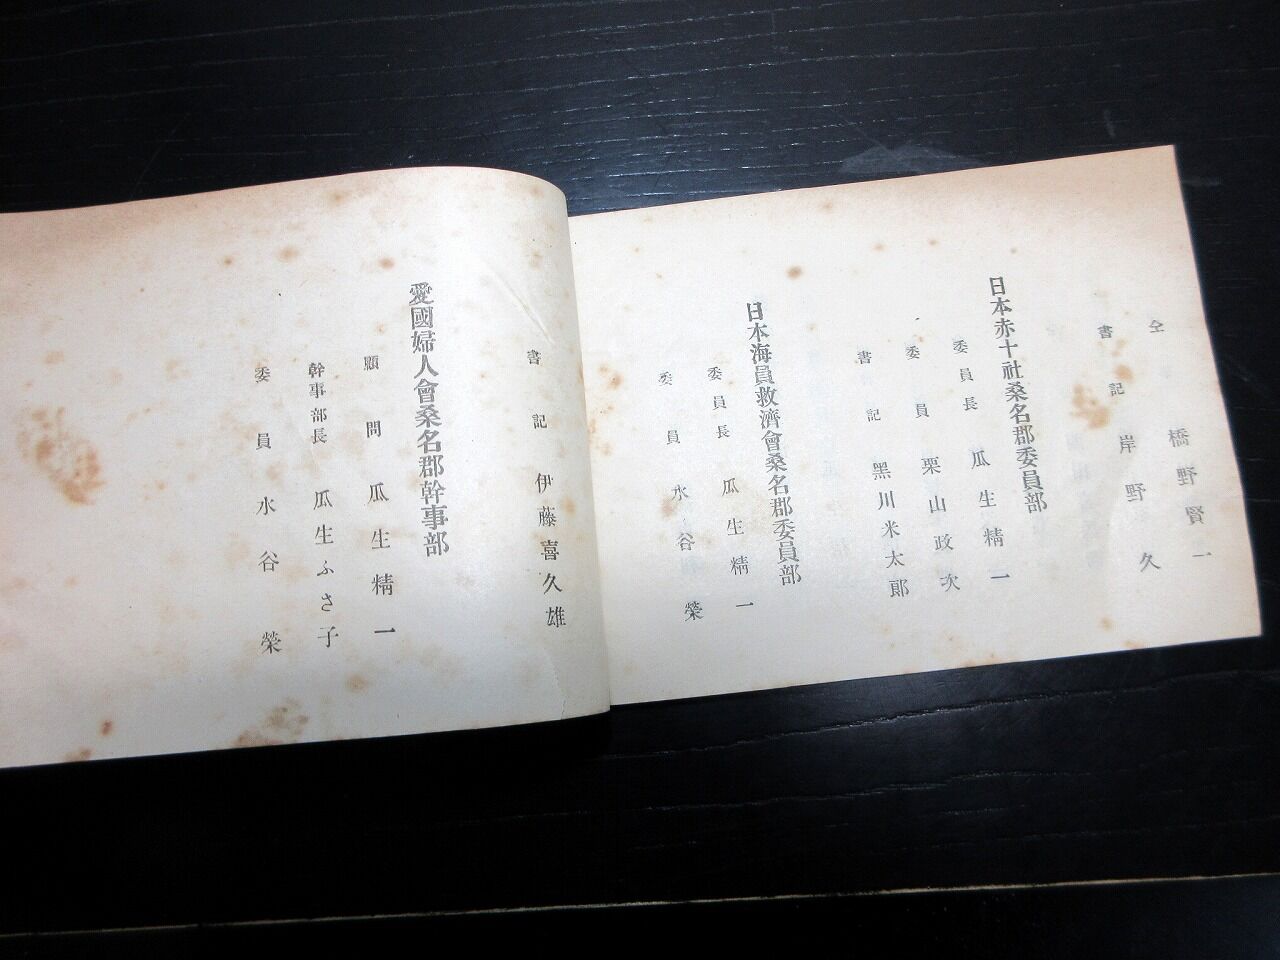 仝 橋野賢一
書記 岸野久
日本赤十社桑名郡委員部
委員長 瓜生精一
委員 栗山政次
書記 黑川米太郎
日本海員救濟會桑名郡委員部
委員長 瓜生精一
委員 水谷榮
書記 伊藤喜久雄
愛國婦人會桑名郡幹事部
顧問 瓜生精一
幹事部長 瓜生ふさ子
委員 水谷榮